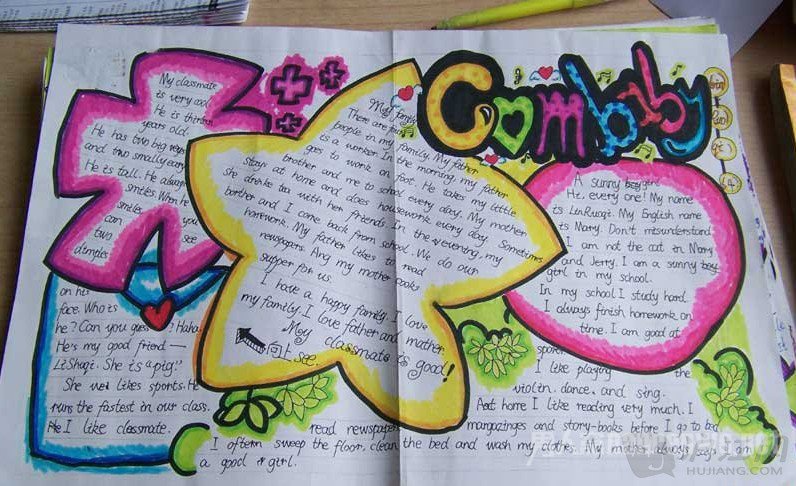 Combaby
My classmate
is very cool.
He is thirteen
years old.
He has two big eyes
and two small years
He is tall. He always
smiles. When he
smiles you
can see
two
dimples
on his
face. Who is
he? Can you gues ? Haha,
He's my good friend —
LiShuqi. She is a "pig!"
She likes sports. He
runs the fastest in our class.
I like classmate.
My family
There are four
people in my family. My father
is a worker. In the morning, my father
goes to work on foot. He takes my little
brother and me to school every day. My mother
stay at home and does housework every day. Sometimes
she drinks tea with her friends. In the evening, my
borther and I come back from school. We do our
homework. My father likes to read
newspapers. Ang my mother cooks
supper for us.
I have a happy family. I love
my family. I love father and mother.
My classmate is good!
向上看.
A sunny girl
Hi, every one! My name
is LinRuoqi. My English name
is Marry. Don't misunderstand
I am not the cat in Marry
and Jerry. I am a sunny
girl in my school.
In my school I study hard.
I always finish homework on
time. I am good at
sports.
I like playing the
violin, dance, and sing.
At home I like reading very much. I
read newspapers margazinges and story-books before I go to bed
I oftern sweep the floor, clean the bed and wash my clothes. My mother always says I am
a good girl.
HUJIANG.COM